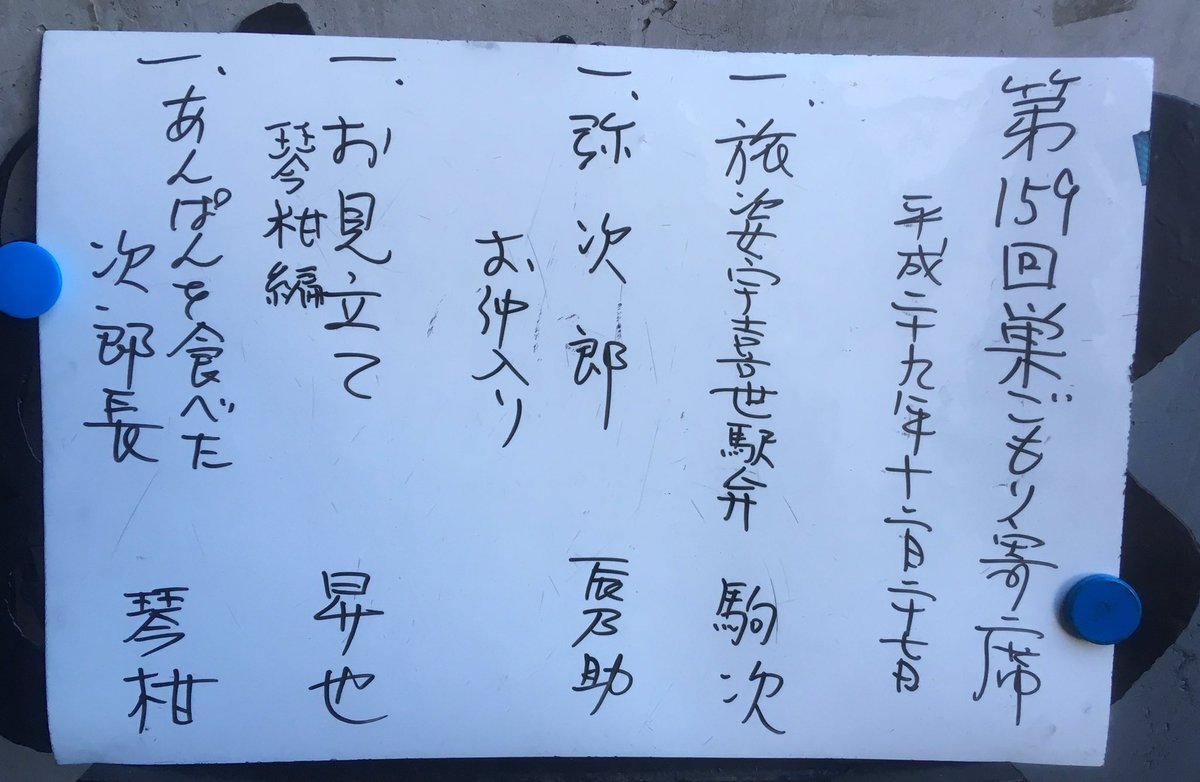 第159回巣ごもり寄席
平成二十九年十二月二十七日
一、旅姿宇喜世駅弁 駒次
一、弥次郎 辰乃助
お仲入り
一、お見立て 昇也
琴柑編
一、あんぱんを食べた
次郎長 琴柑